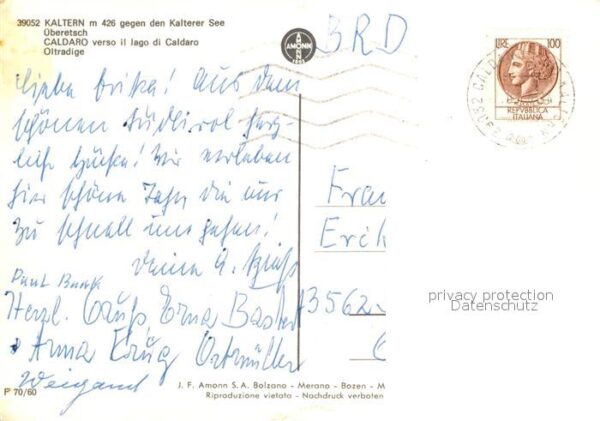 39052 KALTERN m 426 gegen den Kalterer See
Überetsch
CALDARO verso il lago di Caldaro
Oltradige
AMONN
BRD
LIRE 100
REPVBBLICA
ITALIANA
39052 CALD
Liebe Erika! Aus dem
schönen Südtirol herz-
liche Grüße! Wir verleben
hier schöne Tage die nur
zu schnell um gehen!
Deine A.
Paul
Herzl. Gruß Erna
Anna Ostmüller
Weigand
Frau
Erik
3562-
privacy protection
Datenschutz
P 70/60
J. F. Amonn S.A. Bolzano - Merano - Bozen - M
Riproduzione vietata - Nachdruck verboten